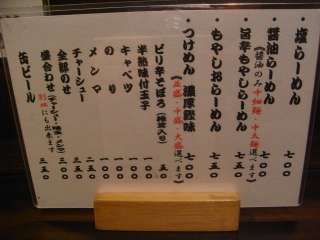 塩らーめん 七〇〇
醤油らーめん 七〇〇
(醤油のみ中細麺・中太麺選べます)
旨辛もやしらーめん 八〇〇
もやしおらーめん 八〇〇
つけめん 濃厚鰹味 七〇〇
(並盛・中盛・大盛選べます)
ピリ辛そぼろ 五〇
半熟味付玉子 一〇〇
キャベツ 一〇〇
のり 一〇〇
メンマ
チャーシュー
全部のせ
盛合わせ
別皿にも出来ます
缶ビール 三五〇